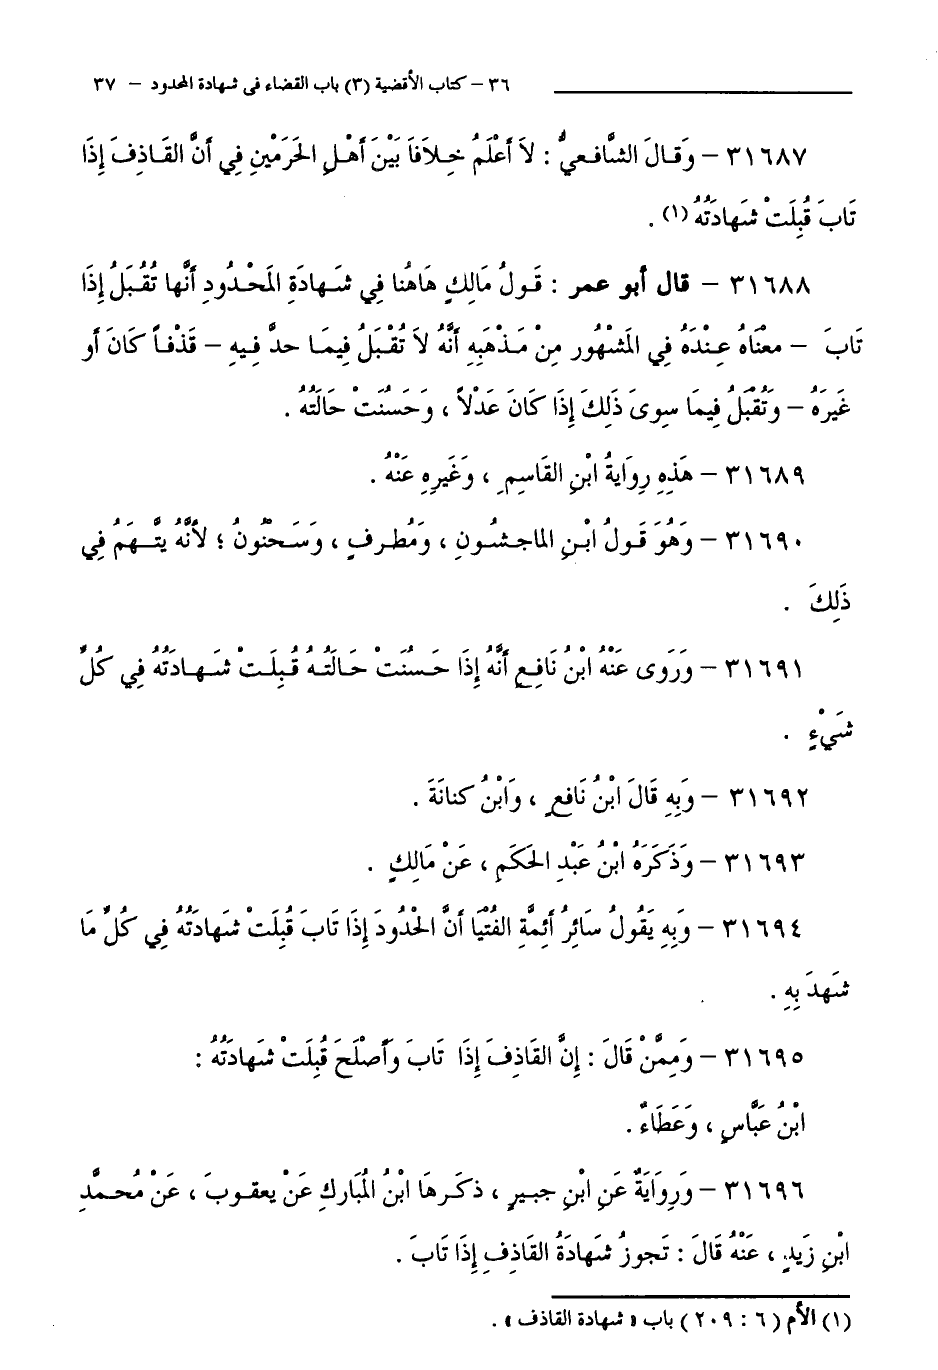 ٣٦ – كتاب الأقضية (٣) باب القضاء فى شهادة المحدود – ٣٧
٣١٦٨٧ – وَقَالَ الشَّافعيُّ : لاَ أَعْلَمُ خِلاَفَاَ بَيْنَ أَهْلِ الحَرَمْينِ فِي أَنَّ القَاذِفَ إِذَا
تَابَ قُبِلَتْ شَهادَتُهُ (١) .
٣١٦٨٨ – قال أبو عمر : قَولُ مَالِكٍ هَاهُنا فِي شَهادَةِ المَحْدُودِ أَنَّها تُقْبَلُ إِذَا
تَابَ – معْنَاهُ عِنْدَهُ فِي المَشْهُورِ مِنْ مَذْهَبِهِ أَنَّهُ لاَ تُقْبَلُ فِيمَا حدَّ فيهِ – قَذْفاً كَانَ أو
غَيرَهُ – وَتُقْبَلُ فِيمَا سِوىَ ذَلِكَ إِذَا كَانَ عَدْلاً ، وَحَسُنَتْ حَالَتُهُ .
٣١٦٨٩ – هَذِهِ رِوايَةُ ابْنِ القَاسِمِ ، وَغَيرِهِ عَنْهُ .
٣١٦٩٠ – وَهُوَ قَولُ ابْنِ الماجشُونِ ، وَمُطرفٍ ، وَسَحْنُونُ ؛ لأنَّهُ يتَّهمُ فِي
ذَلِكَ .
٣١٦٩١ – وَرَوى عَنْهُ ابْنُ نَافِعٍ أَنَّهُ إِذَا حَسُنَتْ حَالَتُهُ قُبِلَتْ شَهادَتُهُ فِي كُلِّ
شَيْءٍ .
٣١٦٩٢ – وَبِهِ قَالَ ابْنُ نَافعٍ ، وَابْنُ كنانَةَ .
٣١٦٩٣ – وَذَكَرَهُ ابْنُ عَبْدِ الحَكَمِ ، عَنْ مَالِكٍ .
٣١٦٩٤ – وَبِهِ يَقُولُ سَائِرُ أَئِمَّةِ الفُتْيَا أَنَّ المحْدُودَ إِذَا تَابَ قُبِلَتْ شهادَتُهُ فِي كُلِّ مَا
شَهدَ بِهِ .
٣١٦٩٥ – وَمِمَّنْ قَالَ : إِنَّ القَاذِفَ إِذَا تَابَ وَأَصْلَحَ قُبِلَتْ شَهادَتُهُ :
ابْنُ عَبَّاسٍ ، وَعَطَاءٌ .
٣١٦٩٦ – وَرِوايَةٌ عَنِ ابْنِ جبيرٍ ، ذكَرهَا ابْنُ المُبَاركِ عَنْ يعقوبَ ، عَنْ مُحمَّدِ
ابْنِ زَيدٍ ، عَنْهُ قَالَ : تَجوزُ شَهادَةُ القَاذفِ إِذَا تَابَ .
(١) الأم (٦ : ٢٠٩) باب « شهادة القاذف » .